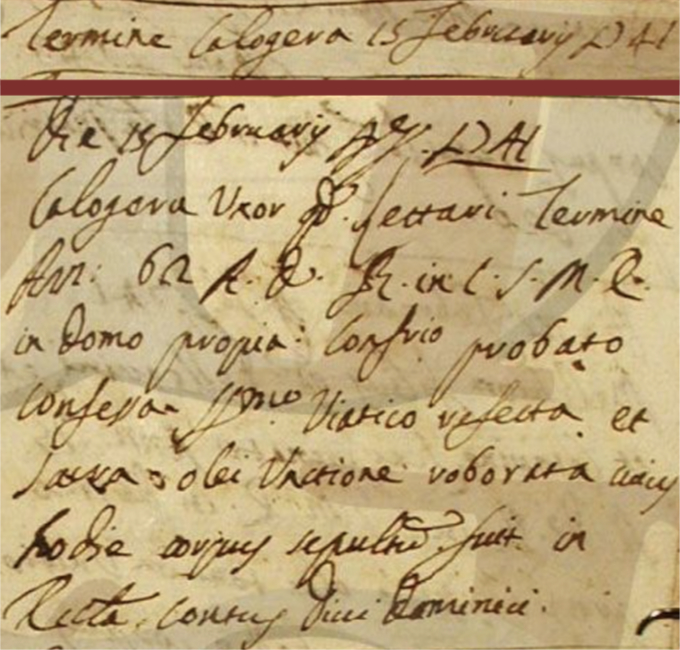 Termine Calogera 15 february D 41
Die 15 february D 41
Calogera Uxor qd. Termine
Ann: 62 A. D. R. in C. S. M. E.
in domo propia: Confrio probato
confessa SSmo Viatico refecta et
sacra olei Unctione roborata cuius
hodie corpus sepultū fuit in
Eccla Contus Divi Dominici.